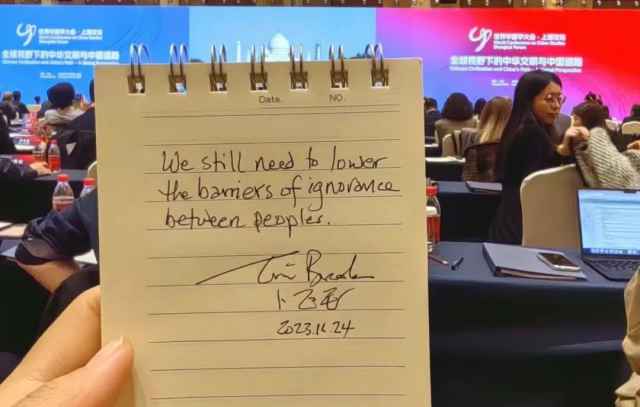 世界中国学大会·上海论坛
World Conference on China Studies
Shanghai Forum
全球视野下的中华文明与中国道路
世界中国学大会·上海论坛
World Conference on China Studies
Shanghai Forum
全球视野下的中华文明与中国道路
Date.
NO.
We still need to lower
the barriers of ignorance
between peoples.
2023.11.24